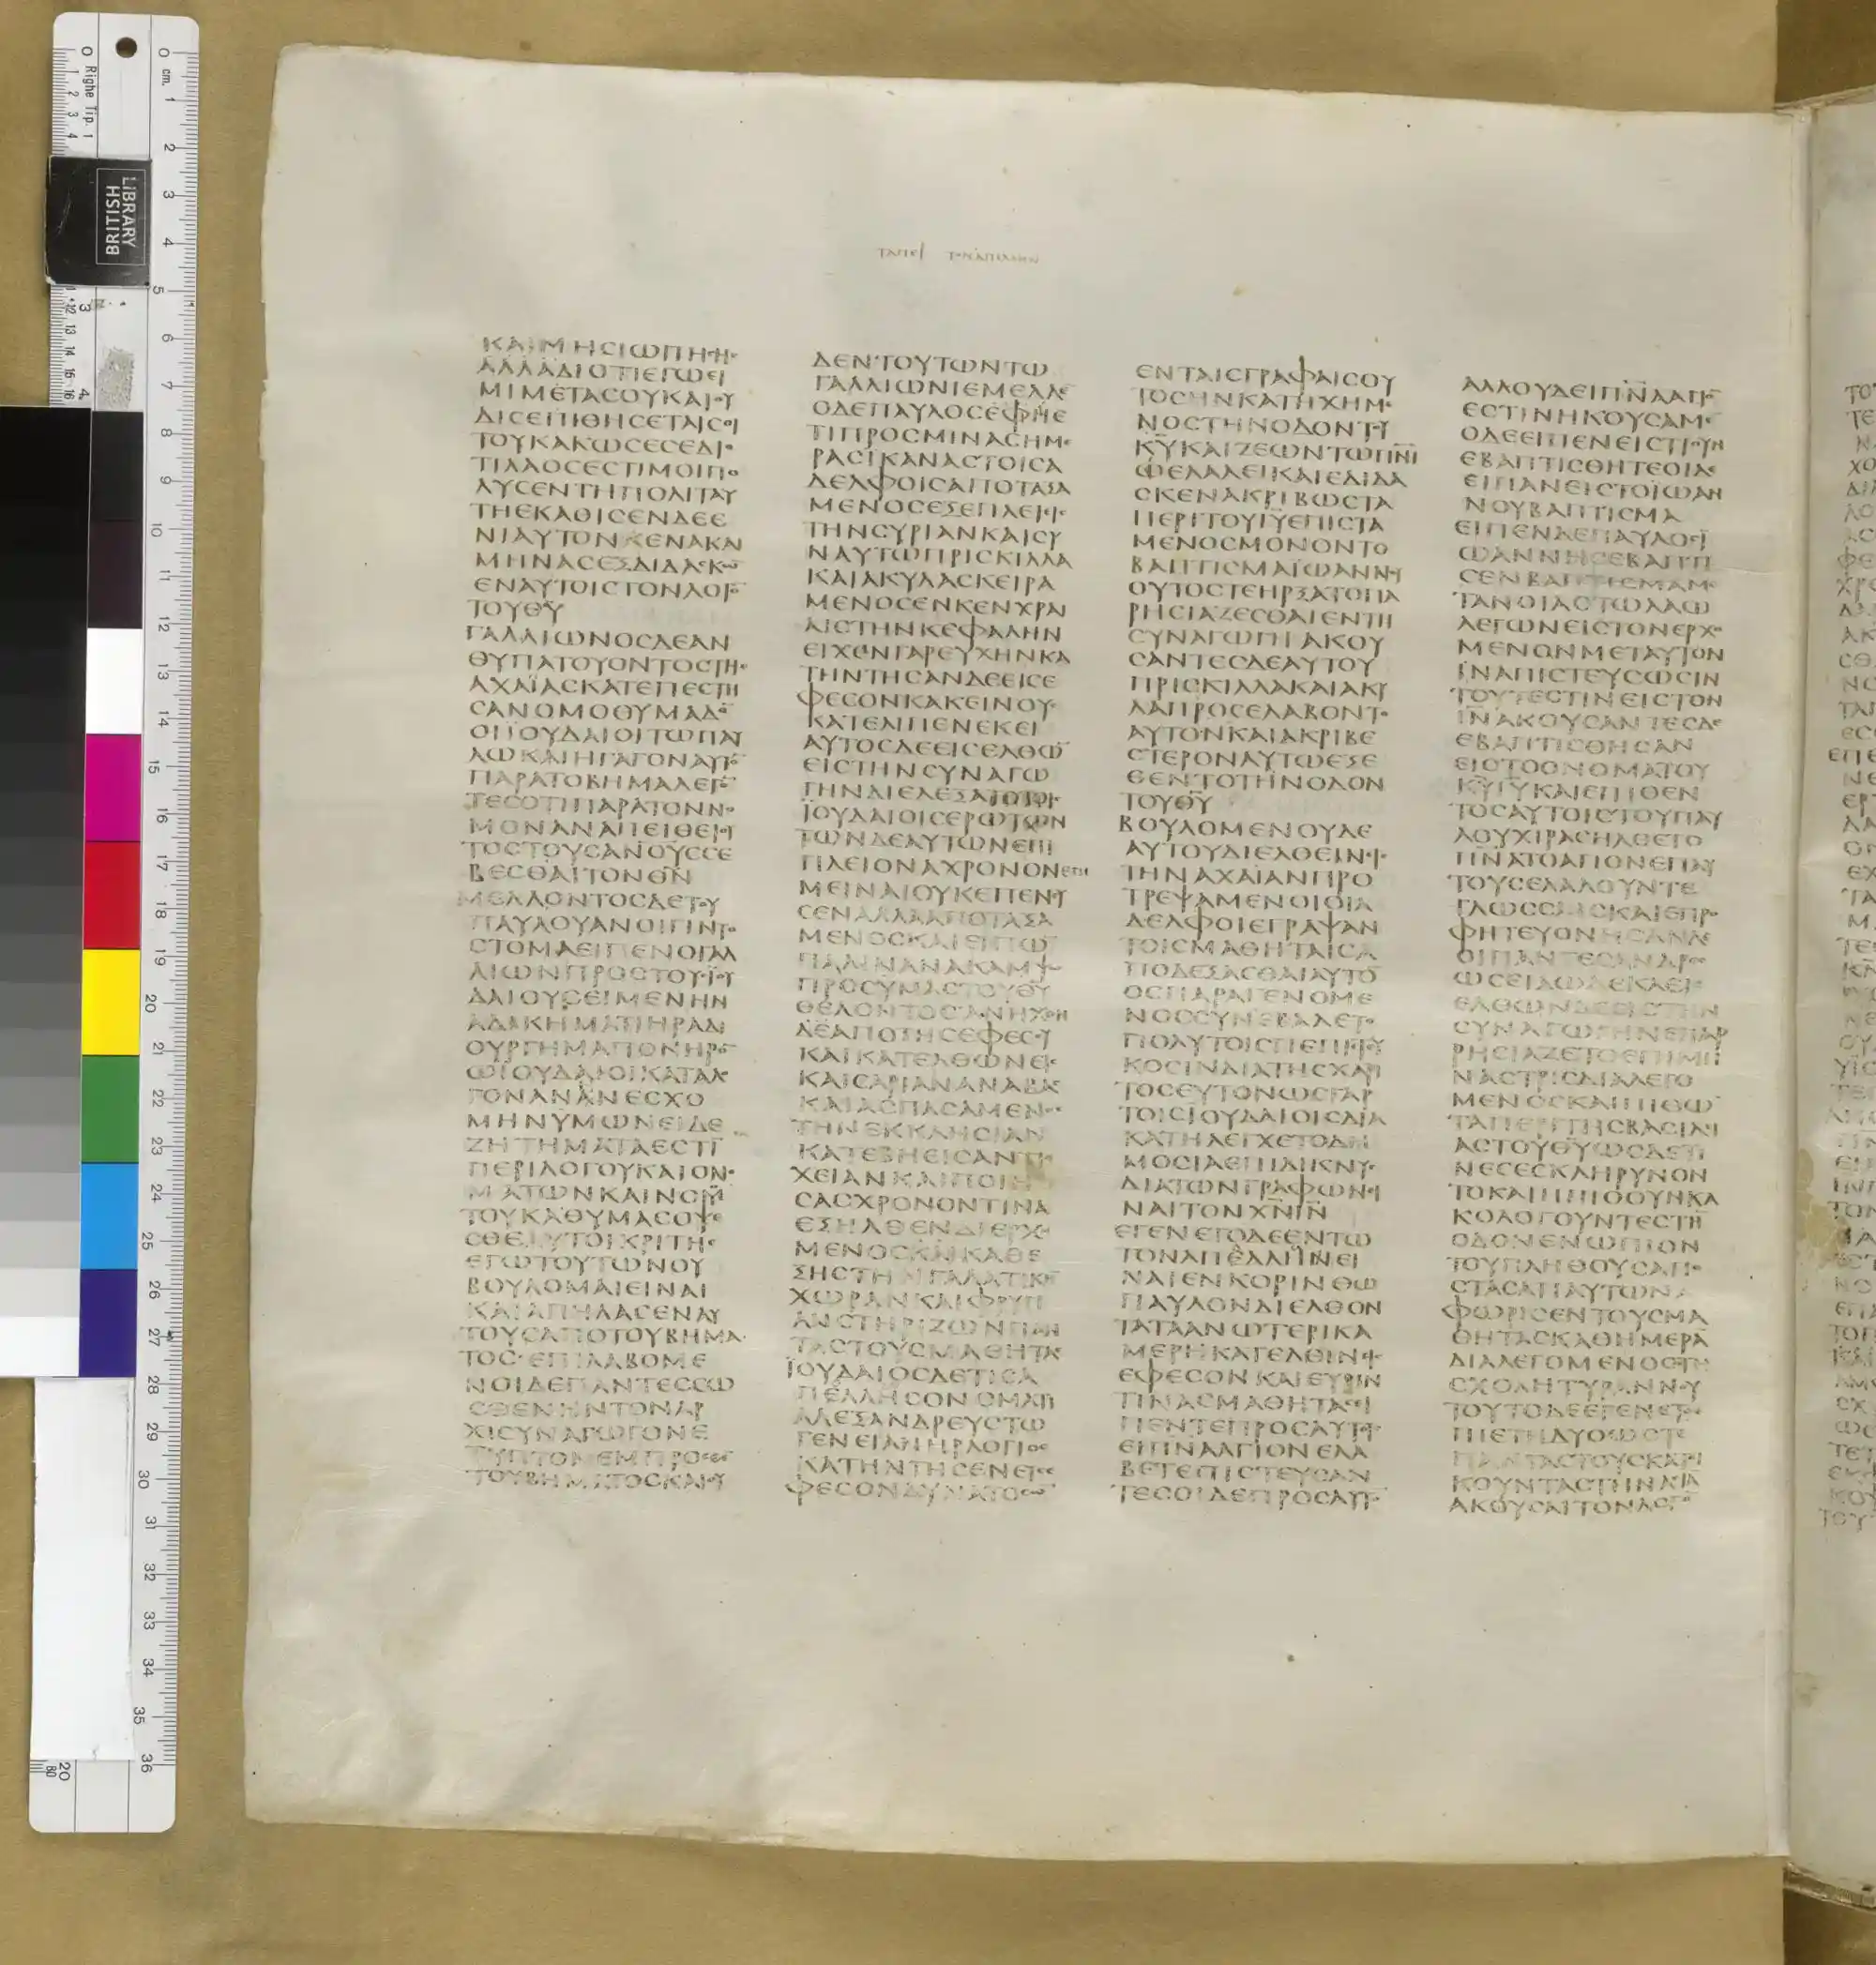 ΚΑΙ ΜΗ ϹΙΩΠΗϹΗϹ
ΑΛΛΑ ΔΙΟΤΙ ΕΓΩ ΕΙ
ΜΙ ΜΕΤΑ ϹΟΥ ΚΑΙ ΟΥ
ΔΙϹ ΕΠΙΘΗϹΕΤΑΙ ϹΟΙ
ΤΟΥ ΚΑΚΩϹΕ ϹΕ ΔΙΟ
ΤΙ ΛΑΟϹ ΕϹΤΙ ΜΟΙ ΠΟ
ΛΥϹ ΕΝ ΤΗ ΠΟΛΙ ΤΑΥ
ΤΗ ΕΚΑΘΙϹΕΝ ΔΕ Ε
ΝΙΑΥΤΟΝ ΚΕΝΑ ΚΑΙ
ΜΗΝΑϹ ΕΞ ΔΙΔΑϹΚΩ
ΕΝ ΑΥΤΟΙϹ ΤΟΝ ΛΟΓΟ
ΤΟΥ ΘΥ
ΓΑΛΛΙΩΝΟϹ ΔΕ ΑΝ
ΘΥΠΑΤΟΥ ΟΝΤΟϹ ΤΗϹ
ΑΧΑΪΑϹ ΚΑΤΕΠΕϹΤΗ
ϹΑΝ ΟΜΟΘΥΜΑΔΟ
ΟΙ ΙΟΥΔΑΙΟΙ ΤΩ ΠΑΥ
ΛΩ ΚΑΙ ΗΓΑΓΟΝ ΑΥΤΟ
ΠΑΡΑ ΤΟ ΒΗΜΑ ΛΕΓΟ
ΤΕϹ ΟΤΙ ΠΑΡΑ ΤΟΝ ΝΟ
ΜΟΝ ΑΝΑΠΕΙΘΕΙ ΟΥ
ΤΟϹ ΤΟΥϹ ΑΝΟΥϹ ϹΕ
ΒΕϹΘΑΙ ΤΟΝ ΘΝ
ΜΕΛΛΟΝΤΟϹ ΔΕ ΤΟΥ
ΠΑΥΛΟΥ ΑΝΟΙΓΙΝ ΤΟ
ϹΤΟΜΑ ΕΙΠΕΝ Ο ΓΑΛ
ΛΙΩΝ ΠΡΟϹ ΤΟΥϹ ΙΟΥ
ΔΑΙΟΥϹ ΕΙ ΜΕΝ ΗΝ
ΑΔΙΚΗΜΑ ΤΙ Η ΡΑΔΙ
ΟΥΡΓΗΜΑ ΠΟΝΗΡΟ
Ω ΙΟΥΔΑΙΟΙ ΚΑΤΑ ΛΟ
ΓΟΝ ΑΝ ΑΝΕϹΧΟ
ΜΗΝ ΥΜΩΝ ΕΙ ΔΕ
ΖΗΤΗΜΑΤΑ ΕϹΤΙ
ΠΕΡΙ ΛΟΓΟΥ ΚΑΙ ΟΝΟ
ΜΑΤΩΝ ΚΑΙ ΝΟΜΟΥ
ΤΟΥ ΚΑΘ ΥΜΑϹ ΟΨΕ
ϹΘΕ ΑΥΤΟΙ ΚΡΙΤΗϹ
ΕΓΩ ΤΟΥΤΩΝ ΟΥ
ΒΟΥΛΟΜΑΙ ΕΙΝΑΙ
ΚΑΙ ΑΠΗΛΑϹΕΝ ΑΥ
ΤΟΥϹ ΑΠΟ ΤΟΥ ΒΗΜΑ
ΤΟϹ ΕΠΙΛΑΒΟΜΕ
ΝΟΙ ΔΕ ΠΑΝΤΕϹ ϹΩ
ϹΘΕΝΗΝ ΤΟΝ ΑΡ
ΧΙϹΥΝΑΓΩΓΟΝ Ε
ΤΥΠΤΟΝ ΕΜΠΡΟϹΘΕ
ΤΟΥ ΒΗΜΑΤΟϹ ΚΑΙ ΟΥ
ΔΕΝ ΤΟΥΤΩΝ ΤΩ
ΓΑΛΛΙΩΝΙ ΕΜΕΛΛΕ
Ο ΔΕ ΠΑΥΛΟϹ ΕΦΗ Ε
ΤΙ ΠΡΟϹΜΙΝΑϹ ΗΜΕ
ΡΑϹ ΙΚΑΝΑϹ ΤΟΙϹ Α
ΔΕΛΦΟΙϹ ΑΠΟΤΑΞΑ
ΜΕΝΟϹ ΕΞΕΠΛΕΙ ΕΙϹ
ΤΗΝ ϹΥΡΙΑΝ ΚΑΙ ϹΥ
Ν ΑΥΤΩ ΠΡΙϹΚΙΛΛΑ
ΚΑΙ ΑΚΥΛΑϹ ΚΕΙΡΑ
ΜΕΝΟϹ ΕΝ ΚΕΝΧΡΑΙ
ΑΙϹ ΤΗΝ ΚΕΦΑΛΗΝ
ΕΙΧΕΝ ΓΑΡ ΕΥΧΗΝ ΚΑ
ΤΗΝΤΗϹΑΝ ΔΕ ΕΙϹ Ε
ΦΕϹΟΝ ΚΑΚΕΙΝΟΥϹ
ΚΑΤΕΛΙΠΕΝ ΕΚΕΙ
ΑΥΤΟϹ ΔΕ ΕΙϹΕΛΘΩ
ΕΙϹ ΤΗΝ ϹΥΝΑΓΩ
ΓΗΝ ΔΙΕΛΕΞΑΤΟ ΤΟΙϹ
ΪΟΥΔΑΙΟΙϹ ΕΡΩΤΩΝ
ΤΩΝ ΔΕ ΑΥΤΩΝ ΕΠΙ
ΠΛΕΙΟΝΑ ΧΡΟΝΟΝ ΕΠΙ
ΜΕΙΝΑΙ ΟΥΚ ΕΠΕΝΕΥ
ϹΕΝ ΑΛΛΑ ΑΠΟΤΑΞΑ
ΜΕΝΟϹ ΚΑΙ ΕΙΠΩ
ΠΑΛΙΝ ΑΝΑΚΑΜΨΩ
ΠΡΟϹ ΥΜΑϹ ΤΟΥ ΘΥ
ΘΕΛΟΝΤΟϹ ΑΝΗΧΘΗ
ΔΕ ΑΠΟ ΤΗϹ ΕΦΕϹΟΥ
ΚΑΙ ΚΑΤΕΛΘΩΝ ΕΙϹ
ΚΑΙϹΑΡΙΑΝ ΑΝΑΒΑϹ
ΚΑΙ ΑϹΠΑϹΑΜΕΝΟϹ
ΤΗΝ ΕΚΚΛΗϹΙΑΝ
ΚΑΤΕΒΗ ΕΙϹ ΑΝΤΙΟ
ΧΕΙΑΝ ΚΑΙ ΠΟΙΗ
ϹΑϹ ΧΡΟΝΟΝ ΤΙΝΑ
ΕΞΗΛΘΕΝ ΔΙΕΡΧΟ
ΜΕΝΟϹ ΚΑΘΕ
ΞΗϹ ΤΗΝ ΓΑΛΑΤΙΚΗ
ΧΩΡΑΝ ΚΑΙ ΦΡΥΓΙ
ΑΝ ϹΤΗΡΙΖΩΝ ΠΑΝ
ΤΑϹ ΤΟΥϹ ΜΑΘΗΤΑϹ
ΪΟΥΔΑΙΟϹ ΔΕ ΤΙϹ Α
ΠΕΛΛΗϹ ΟΝΟΜΑΤΙ
ΑΛΕΞΑΝΔΡΕΥϹ ΤΩ
ΓΕΝΕΙ ΑΝΗΡ ΛΟΓΙΟϹ
ΚΑΤΗΝΤΗϹΕΝ ΕΙϹ Ε
ΦΕϹΟΝ ΔΥΝΑΤΟϹ ΩΝ
ΕΝ ΤΑΙϹ ΓΡΑΦΑΙϹ ΟΥ
ΤΟϹ ΗΝ ΚΑΤΗΧΗΜΕ
ΝΟϹ ΤΗΝ ΟΔΟΝ ΤΟΥ
ΚΥ ΚΑΙ ΖΕΩΝ ΤΩ ΠΝΙ
ΕΛΑΛΕΙ ΚΑΙ ΕΔΙΔΑ
ϹΚΕΝ ΑΚΡΙΒΩϹ ΤΑ
ΠΕΡΙ ΤΟΥ ΙΥ ΕΠΙϹΤΑ
ΜΕΝΟϹ ΜΟΝΟΝ ΤΟ
ΒΑΠΤΙϹΜΑ ΪΩΑΝΝΟΥ
ΟΥΤΟϹ ΤΕ ΗΡΞΑΤΟ ΠΑ
ΡΗϹΙΑΖΕϹΘΑΙ ΕΝ ΤΗ
ϹΥΝΑΓΩΓΗ ΑΚΟΥ
ϹΑΝΤΕϹ ΔΕ ΑΥΤΟΥ
ΠΡΙϹΚΙΛΛΑ ΚΑΙ ΑΚΥ
ΛΑ ΠΡΟϹΕΛΑΒΟΝΤΟ
ΑΥΤΟΝ ΚΑΙ ΑΚΡΙΒΕ
ϹΤΕΡΟΝ ΑΥΤΩ ΕΞΕ
ΘΕΝΤΟ ΤΗΝ ΟΔΟΝ
ΤΟΥ ΘΥ
ΒΟΥΛΟΜΕΝΟΥ ΔΕ
ΑΥΤΟΥ ΔΙΕΛΘΕΙΝ ΕΙϹ
ΤΗΝ ΑΧΑΪΑΝ ΠΡΟ
ΤΡΕΨΑΜΕΝΟΙ ΟΙ Α
ΔΕΛΦΟΙ ΕΓΡΑΨΑΝ
ΤΟΙϹ ΜΑΘΗΤΑΙϹ Α
ΠΟΔΕΞΑϹΘΑΙ ΑΥΤΟ
ΟϹ ΠΑΡΑΓΕΝΟΜΕ
ΝΟϹ ϹΥΝΕΒΑΛΕΤΟ
ΠΟΛΥ ΤΟΙϹ ΠΕΠΙϹΤΕΥ
ΚΟϹΙΝ ΔΙΑ ΤΗϹ ΧΑΡΙ
ΤΟϹ ΕΥΤΟΝΩϹ ΓΑΡ
ΤΟΙϹ ΙΟΥΔΑΙΟΙϹ ΔΙΑ
ΚΑΤΗΛΕΓΧΕΤΟ ΔΗ
ΜΟϹΙΑ ΕΠΙΔΙΚΝΥϹ
ΔΙΑ ΤΩΝ ΓΡΑΦΩΝ ΕΙ
ΝΑΙ ΤΟΝ ΧΝ ΙΝ
ΕΓΕΝΕΤΟ ΔΕ ΕΝ ΤΩ
ΤΟΝ ΑΠΕΛΛΗΝ ΕΙ
ΝΑΙ ΕΝ ΚΟΡΙΝΘΩ
ΠΑΥΛΟΝ ΔΙΕΛΘΟΝ
ΤΑ ΤΑ ΑΝΩΤΕΡΙΚΑ
ΜΕΡΗ ΚΑΤΕΛΘΙΝ ΕΙϹ
ΕΦΕϹΟΝ ΚΑΙ ΕΥΡΙΝ
ΤΙΝΑϹ ΜΑΘΗΤΑϹ ΕΙ
ΠΕΝ ΤΕ ΠΡΟϹ ΑΥΤΟΥϹ
ΕΙ ΠΝΑ ΑΓΙΟΝ ΕΛΑ
ΒΕΤΕ ΠΙϹΤΕΥϹΑΝ
ΤΕϹ ΟΙ ΔΕ ΠΡΟϹ ΑΥΤΟ
ΑΛΛ ΟΥΔ ΕΙ ΠΝΑ ΑΓΙΟ
ΕϹΤΙΝ ΗΚΟΥϹΑΜΕ
Ο ΔΕ ΕΙΠΕΝ ΕΙϹ ΤΙ ΟΥΝ
ΕΒΑΠΤΙϹΘΗΤΕ ΟΙ ΔΕ
ΕΙΠΑΝ ΕΙϹ ΤΟ ΪΩΑΝ
ΝΟΥ ΒΑΠΤΙϹΜΑ
ΕΙΠΕΝ ΔΕ ΠΑΥΛΟϹ Ϊ
ΩΑΝΝΗϹ ΕΒΑΠΤΙ
ϹΕΝ ΒΑΠΤΙϹΜΑ ΜΕ
ΤΑΝΟΙΑϹ ΤΩ ΛΑΩ
ΛΕΓΩΝ ΕΙϹ ΤΟΝ ΕΡΧΟ
ΜΕΝΟΝ ΜΕΤ ΑΥΤΟΝ
ΪΝΑ ΠΙϹΤΕΥϹΩϹΙΝ
ΤΟΥΤΕϹΤΙΝ ΕΙϹ ΤΟΝ
ΙΝ ΑΚΟΥϹΑΝΤΕϹ ΔΕ
ΕΒΑΠΤΙϹΘΗϹΑΝ
ΕΙϹ ΤΟ ΟΝΟΜΑ ΤΟΥ
ΚΥ ΙΥ ΚΑΙ ΕΠΙΘΕΝ
ΤΟϹ ΑΥΤΟΙϹ ΤΟΥ ΠΑΥ
ΛΟΥ ΧΙΡΑϹ ΗΛΘΕ ΤΟ
ΠΝΑ ΤΟ ΑΓΙΟΝ ΕΠ ΑΥ
ΤΟΥϹ ΕΛΑΛΟΥΝ ΤΕ
ΓΛΩϹϹΑΙϹ ΚΑΙ ΕΠΡΟ
ΦΗΤΕΥΟΝ ΗϹΑΝ ΔΕ
ΟΙ ΠΑΝΤΕϹ ΑΝΔΡΕϹ
ΩϹΕΙ ΔΩΔΕΚΑ ΕΙϹ
ΕΛΘΩΝ ΔΕ ΕΙϹ ΤΗΝ
ϹΥΝΑΓΩΓΗΝ ΕΠΑΡ
ΡΗϹΙΑΖΕΤΟ ΕΠΙ ΜΗ
ΝΑϹ ΤΡΙϹ ΔΙΑΛΕΓΟ
ΜΕΝΟϹ ΚΑΙ ΠΙΘΩ
ΤΑ ΠΕΡΙ ΤΗϹ ΒΑϹΙΛΙ
ΑϹ ΤΟΥ ΘΥ ΩϹ ΔΕ ΤΙ
ΝΕϹ ΕϹΚΛΗΡΥΝΟΝ
ΤΟ ΚΑΙ ΗΠΙΘΟΥΝ ΚΑ
ΚΟΛΟΓΟΥΝΤΕϹ ΤΗ
ΟΔΟΝ ΕΝΩΠΙΟΝ
ΤΟΥ ΠΛΗΘΟΥϹ ΑΠΟ
ϹΤΑϹ ΑΠ ΑΥΤΩΝ Α
ΦΩΡΙϹΕΝ ΤΟΥϹ ΜΑ
ΘΗΤΑϹ ΚΑΘ ΗΜΕΡΑ
ΔΙΑΛΕΓΟΜΕΝΟϹ ΤΗ
ϹΧΟΛΗ ΤΥΡΑΝΝΟΥ
ΤΟΥΤΟ ΔΕ ΕΓΕΝΕΤΟ
ΕΠΙ ΕΤΗ ΔΥΟ ΩϹΤΕ
ΠΑΝΤΑϹ ΤΟΥϹ ΚΑΤΟΙ
ΚΟΥΝΤΑϹ ΤΗΝ ΑϹΙΑ
ΑΚΟΥϹΑΙ ΤΟΝ ΛΟΓΟ
LIBRARY
BRITISH